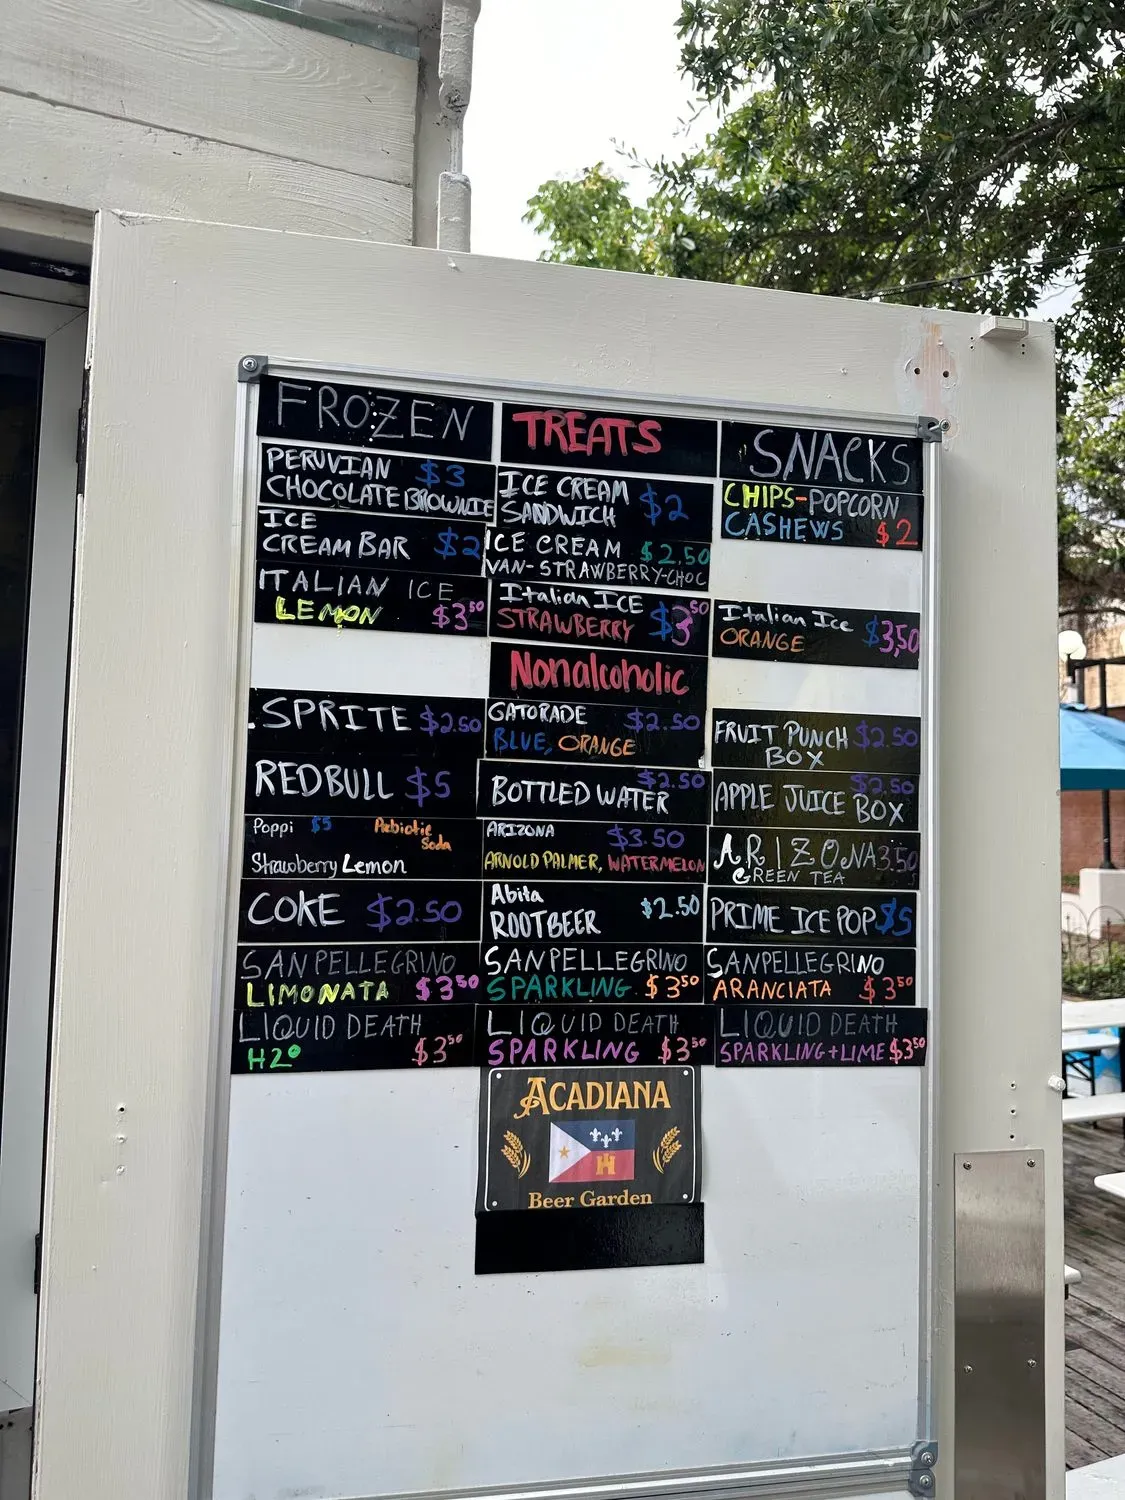 FROZEN
TREATS
SNACKS
PERUVIAN $3
CHOCOLATE BROWNIE
ICE CREAM $2
SANDWICH
CHIPS-POPCORN
CASHEWS $2
ICE
CREAM BAR $2
ICE CREAM $2.50
VAN-STRAWBERRY-CHOC
ITALIAN ICE
LEMON $3⁵⁰
Italian ICE
STRAWBERRY $3⁵⁰
Italian Ice
ORANGE $3,50
Nonalcoholic
SPRITE $2.50
GATORADE $2.50
BLUE, ORANGE
FRUIT PUNCH $2.50
BOX
REDBULL $5
BOTTLED WATER $2.50
APPLE JUICE BOX $2.50
Poppi $5 Prebiotic
Soda
Strawberry Lemon
ARIZONA $3.50
ARNOLD PALMER, WATERMELON
ARIZONA 3.50
GREEN TEA
COKE $2.50
Abita
ROOTBEER $2.50
PRIME ICE POP $5
SANPELLEGRINO
LIMONATA $3⁵⁰
SANPELLEGRINO
SPARKLING $3⁵⁰
SANPELLEGRINO
ARANCIATA $3⁵⁰
LIQUID DEATH
H2O $3⁵⁰
LIQUID DEATH
SPARKLING $3⁵⁰
LIQUID DEATH
SPARKLING+LIME $3⁵⁰
ACADIANA
Beer Garden